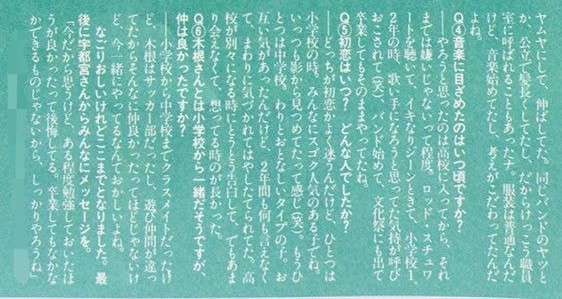 ヤムヤにして、伸ばしてた。同じバンドのヤツと
か、公立で髪長くしてたし、だからけっこう職員
室に呼ばれることもあったナ。服装は普通なんだ
けど、音楽始めてたし、考えがこだわってたんだ
よね。
Q④音楽に目ざめたのはいつ頃ですか?
――やろうと思ったのは高校に入ってから。それ
までは嫌いじゃないって程度。ロッド・スチュワ
ートを聴いて、イキなりシーンときて、高校1、
2年の時、歌い手になろうと思ってた気持が呼び
おこされて(笑)。バンド始めて、文化祭にも出て
卒業してもそのままやってたんわ。
Q⑤初恋はいつ? どんな人でしたか?
――どっちが初恋かよく迷うんだけど、ひとつは
小学校の時。みんなにスゴク人気のある子でね。
いっつも影から見つめてたって感じ(笑)。もうひ
とつは中学校。わりとおとなしいタイプの子。お
互い気があったんだけど、2年間も何も言えなく
て。まわりに気づかれてはやしたてられてた。高
校が別々になる時にとうとう告白して、でもあま
り会えなくて、想ってる時のが長かった。
Q⑥木根さんとは小学校から一緒だそうですが、
仲は良かったですか?
――小学校から中学校までクラスメイトだったけ
ど、木根はサッカー部だったし、遊び仲間が違っ
てたからそんなに仲良かったってほどじゃないけ
ど、今一緒にやってるなんておかしいよね。
なごりおしいけれどここまでとなりました。最
後に宇都宮さんからみんなにメッセージを。
「今だから思うけど、ある程度勉強しておいたほ
うが良かったって後悔してる。卒業してもなかな
かできるものじゃないから、しっかりやろうね」